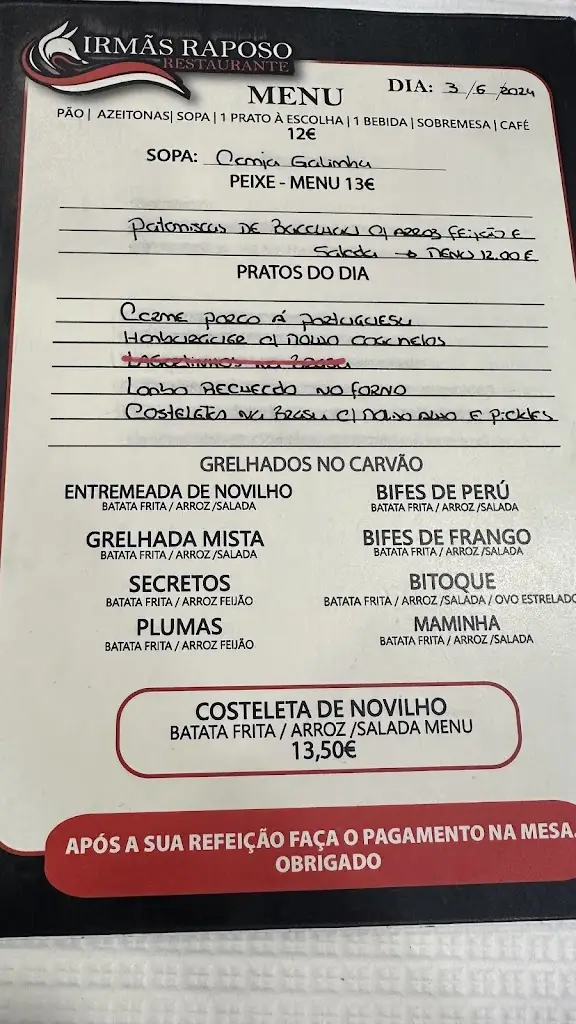 IRMÃS RAPOSO
RESTAURANTE
MENU
DIA: 3/6/2024
PÃO | AZEITONAS| SOPA | 1 PRATO À ESCOLHA | 1 BEBIDA | SOBREMESA | CAFÉ
12€
SOPA: Canja Galinha
PEIXE - MENU 13€
Pataniscas DE Bacalhau C/ ARROZ FEIJÃO E
Salada → MENU 12.00€
PRATOS DO DIA
CARNE PORCO Á PORTUGUESA
HAMBURGUER C/ MOLHO COGUMELOS
LAGARTINHOS NA BRASA
Lombo RECHEADO NO FORNO
COSTELETAS NA BRASA C/ MOLHO ALHO E PICKLES
GRELHADOS NO CARVÃO
ENTREMEADA DE NOVILHO
BATATA FRITA / ARROZ /SALADA
BIFES DE PERÚ
BATATA FRITA / ARROZ /SALADA
GRELHADA MISTA
BATATA FRITA / ARROZ/SALADA
BIFES DE FRANGO
BATATA FRITA / ARROZ /SALADA
SECRETOS
BATATA FRITA / ARROZ FEIJÃO
BITOQUE
BATATA FRITA / ARROZ /SALADA / OVO ESTRELADO
PLUMAS
BATATA FRITA / ARROZ FEIJÃO
MAMINHA
BATATA FRITA / ARROZ /SALADA
COSTELETA DE NOVILHO
BATATA FRITA / ARROZ /SALADA MENU
13,50€
APÓS A SUA REFEIÇÃO FAÇA O PAGAMENTO NA MESA.
OBRIGADO